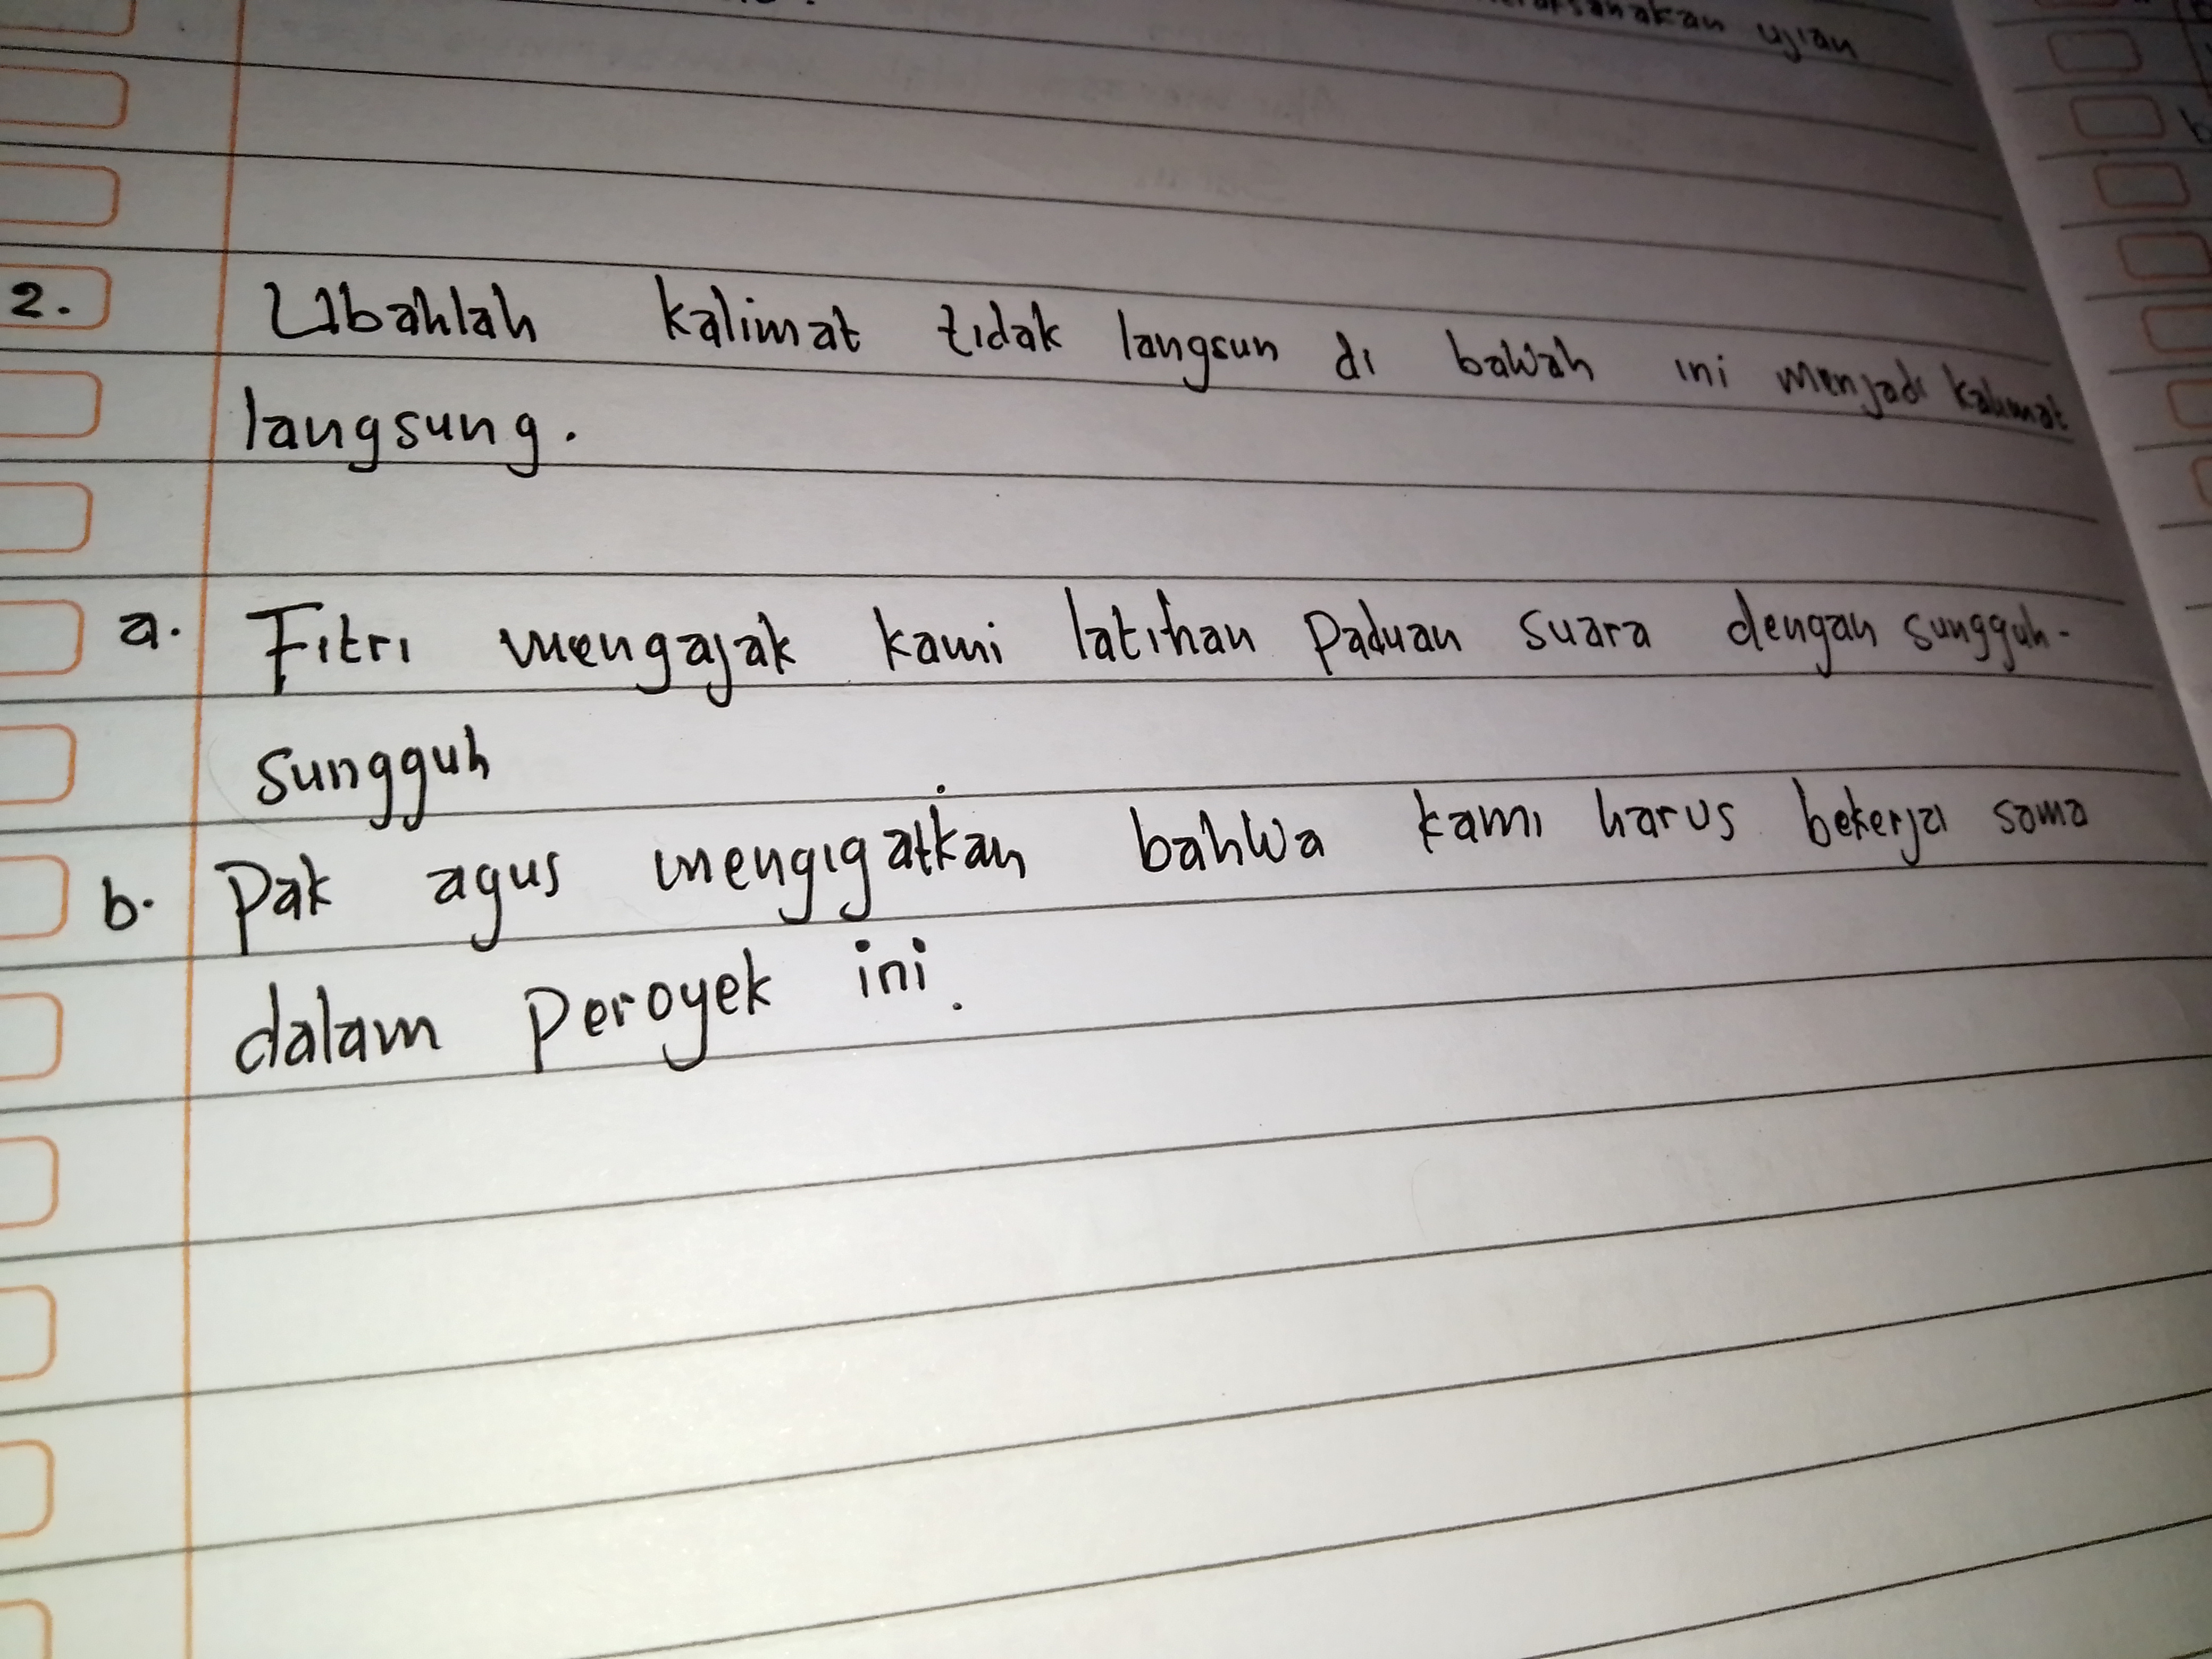 ujian
2. Ubahlah kalimat tidak langsun di bawah ini menjadi kalimat
langsung.
a. Fitri mengajak kami latihan Paduan suara dengan sungguh-
sungguh
b. Pak agus mengigatkan bahwa kami harus bekerja sama
dalam Peroyek ini.